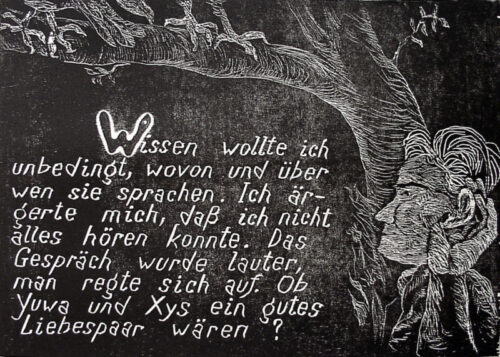 Wissen wollte ich
unbedingt, wovon und über
wen sie sprachen. Ich är-
gerte mich, daß ich nicht
alles hören konnte. Das
Gespräch wurde lauter,
man regte sich auf. Ob
Yuwa und Xys ein gutes
Liebespaar wären ?